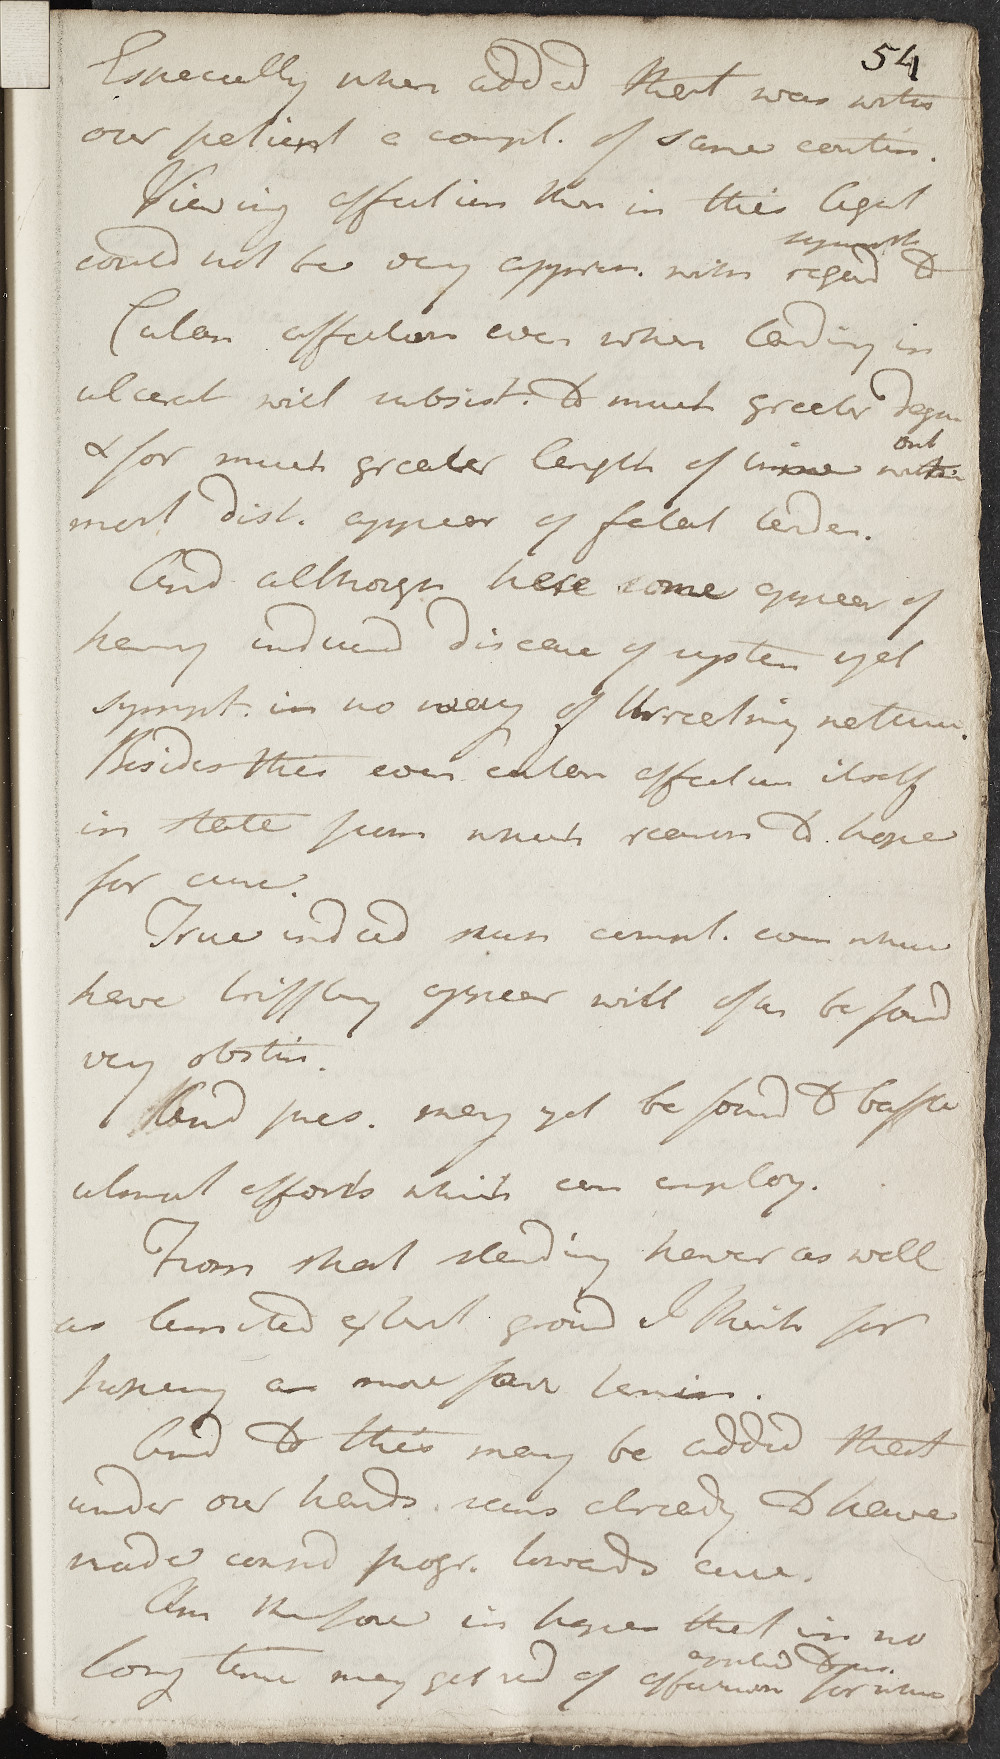 54
Especially when added that was with
our patient a compl. of same contin.
Viewing affection then in this light
could not be very appreh. with regard to
sympt
Cutan affection even when tending in
ulcerat will subsist. to much greater degree
& for much greater length of time without
most dist. appear of fatal tenden.
And although here some appear of
having induced disease of system yet
sympt. in no way of threatening nature.
Besides this even cutan affection itself
in state from which reason to hope
for cure.
True indeed such compl. even when
have triffling appear will often be found
very obstin.
And pres. may yet be found to baffle
utmost efforts which can employ.
From short standing however as well
as limited extent ground I think for
hoping a more fav termin.
And to this may be added that
under our hands seems already to have
made consid progr. towards cure.
Am therefore in hopes that in no
long time may get rid of affection for which
applied to us.